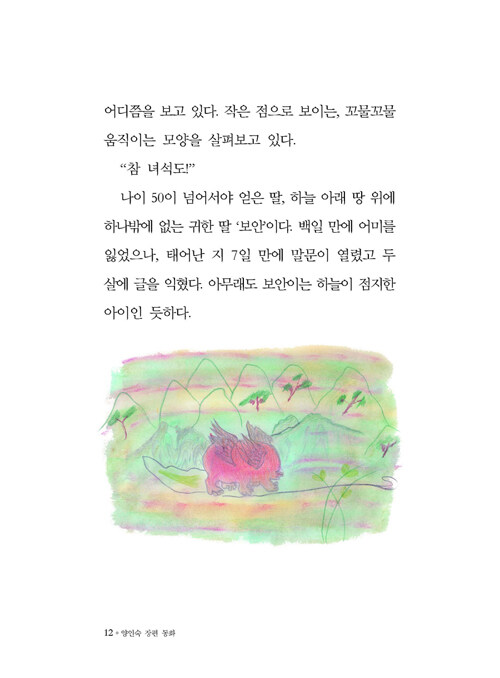 어디쯤을 보고 있다. 작은 점으로 보이는, 꼬물꼬물
움직이는 모양을 살펴보고 있다.
“참 녀석도!”
나이 50이 넘어서야 얻은 딸, 하늘 아래 땅 위에
하나밖에 없는 귀한 딸 ‘보안’이다. 백일 만에 어미를
잃었으나, 태어난 지 7일 만에 말문이 열렸고 두
살에 글을 익혔다. 아무래도 보안이는 하늘이 점지한
아이인 듯하다.
12 • 양인숙 장편 동화